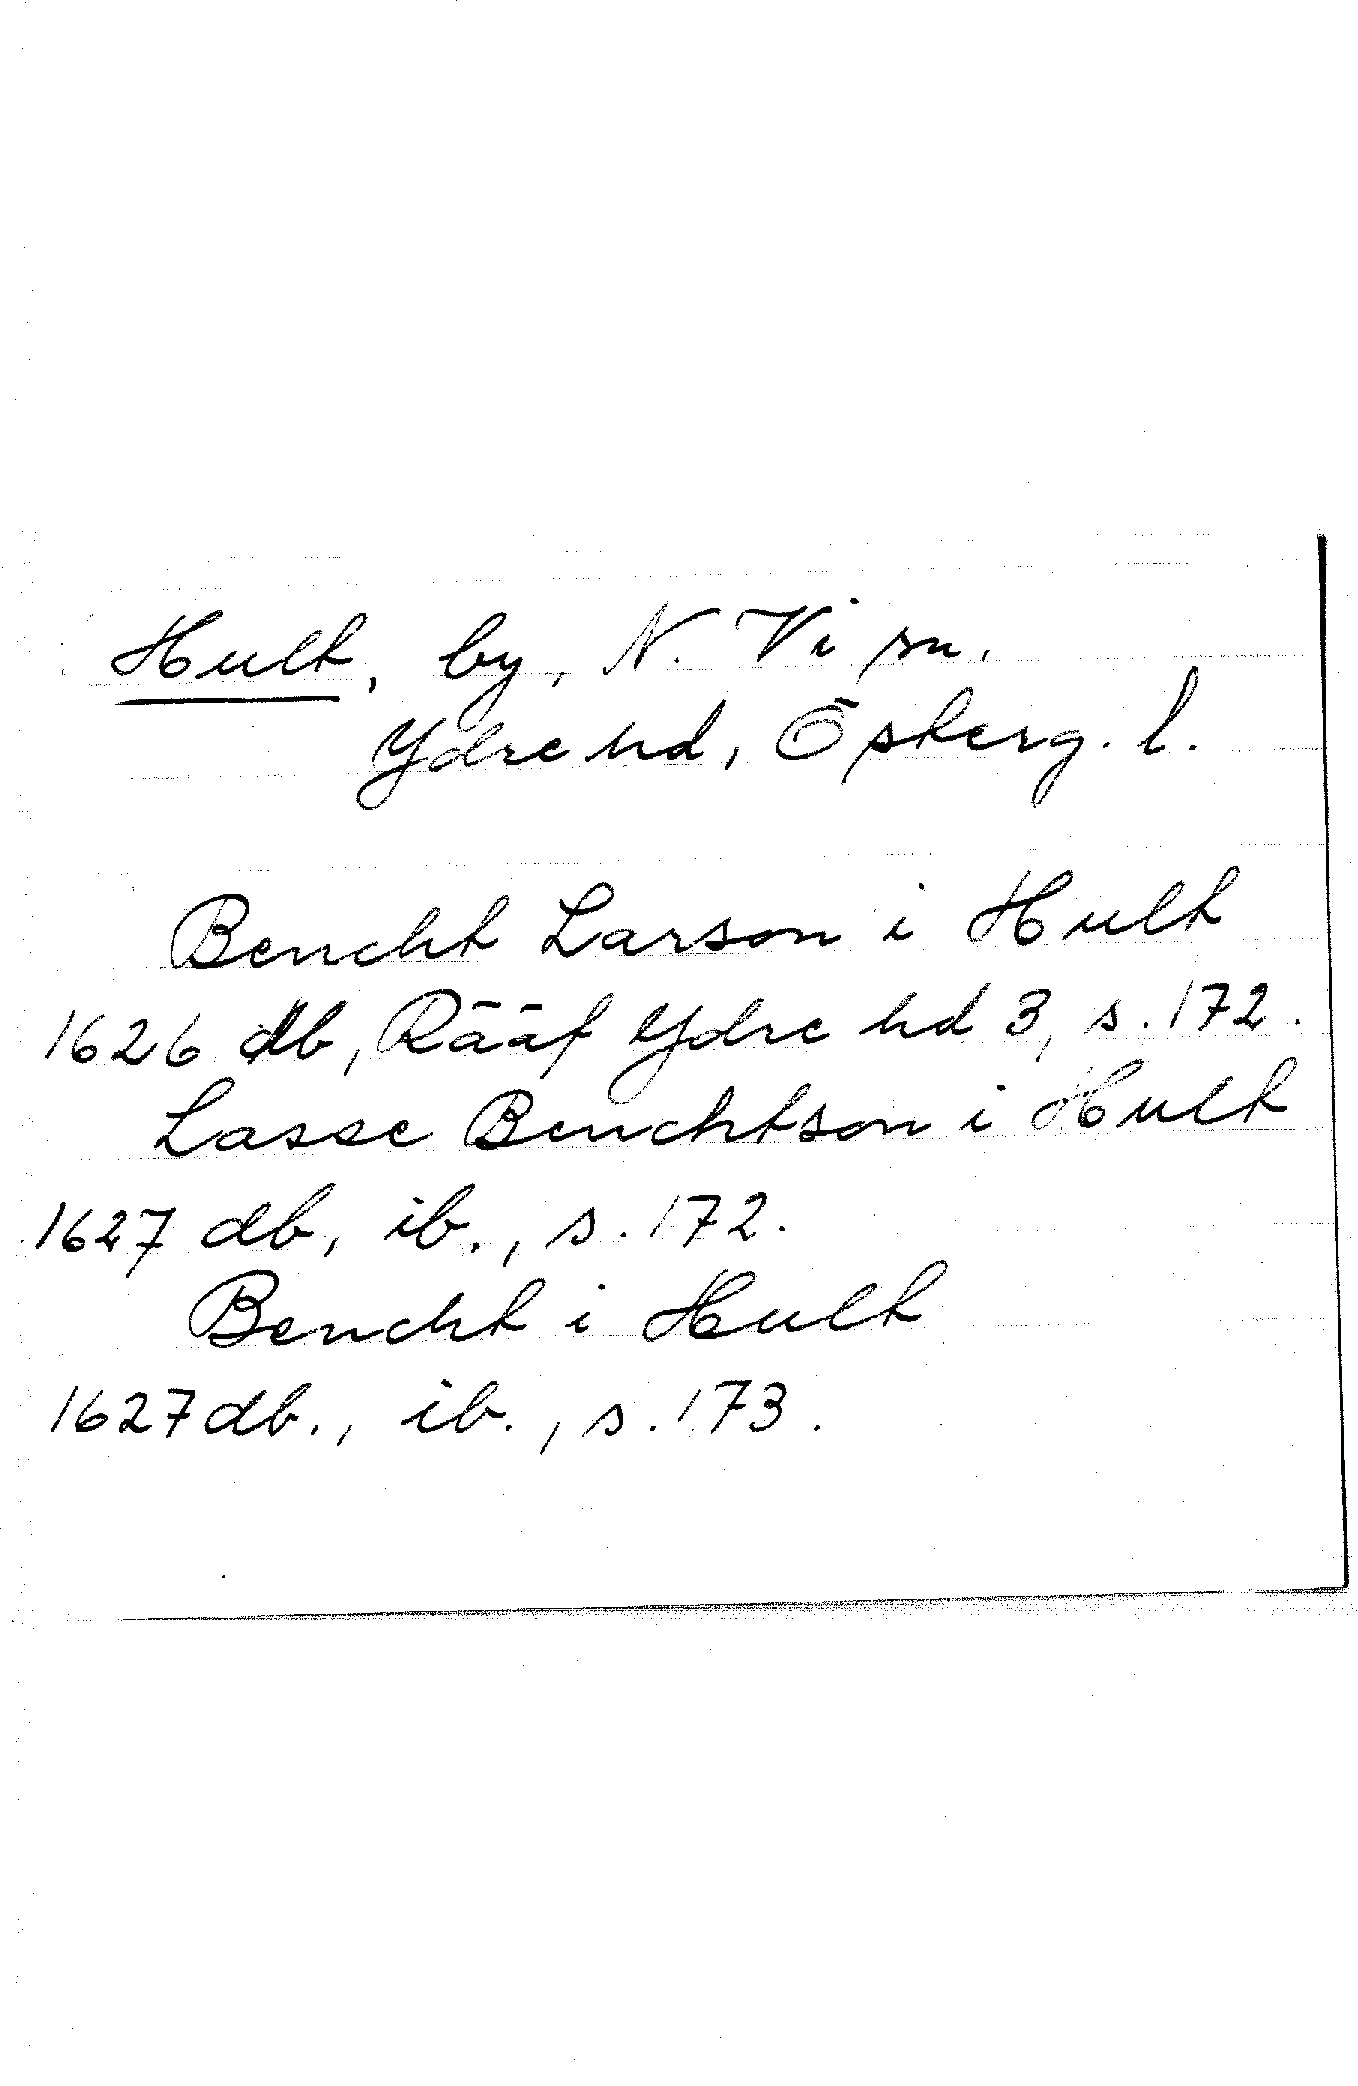 Hult, by, N. Vi sn.
Ydre hd, Österg. l.
Bencht Larson i Hult
1626 db, Rääf Ydre hd 3, s. 172.
Lasse Benchtson i Hult
1627 db, ib., s. 172.
Bencht i Hult
1627 db., ib., s. 173.